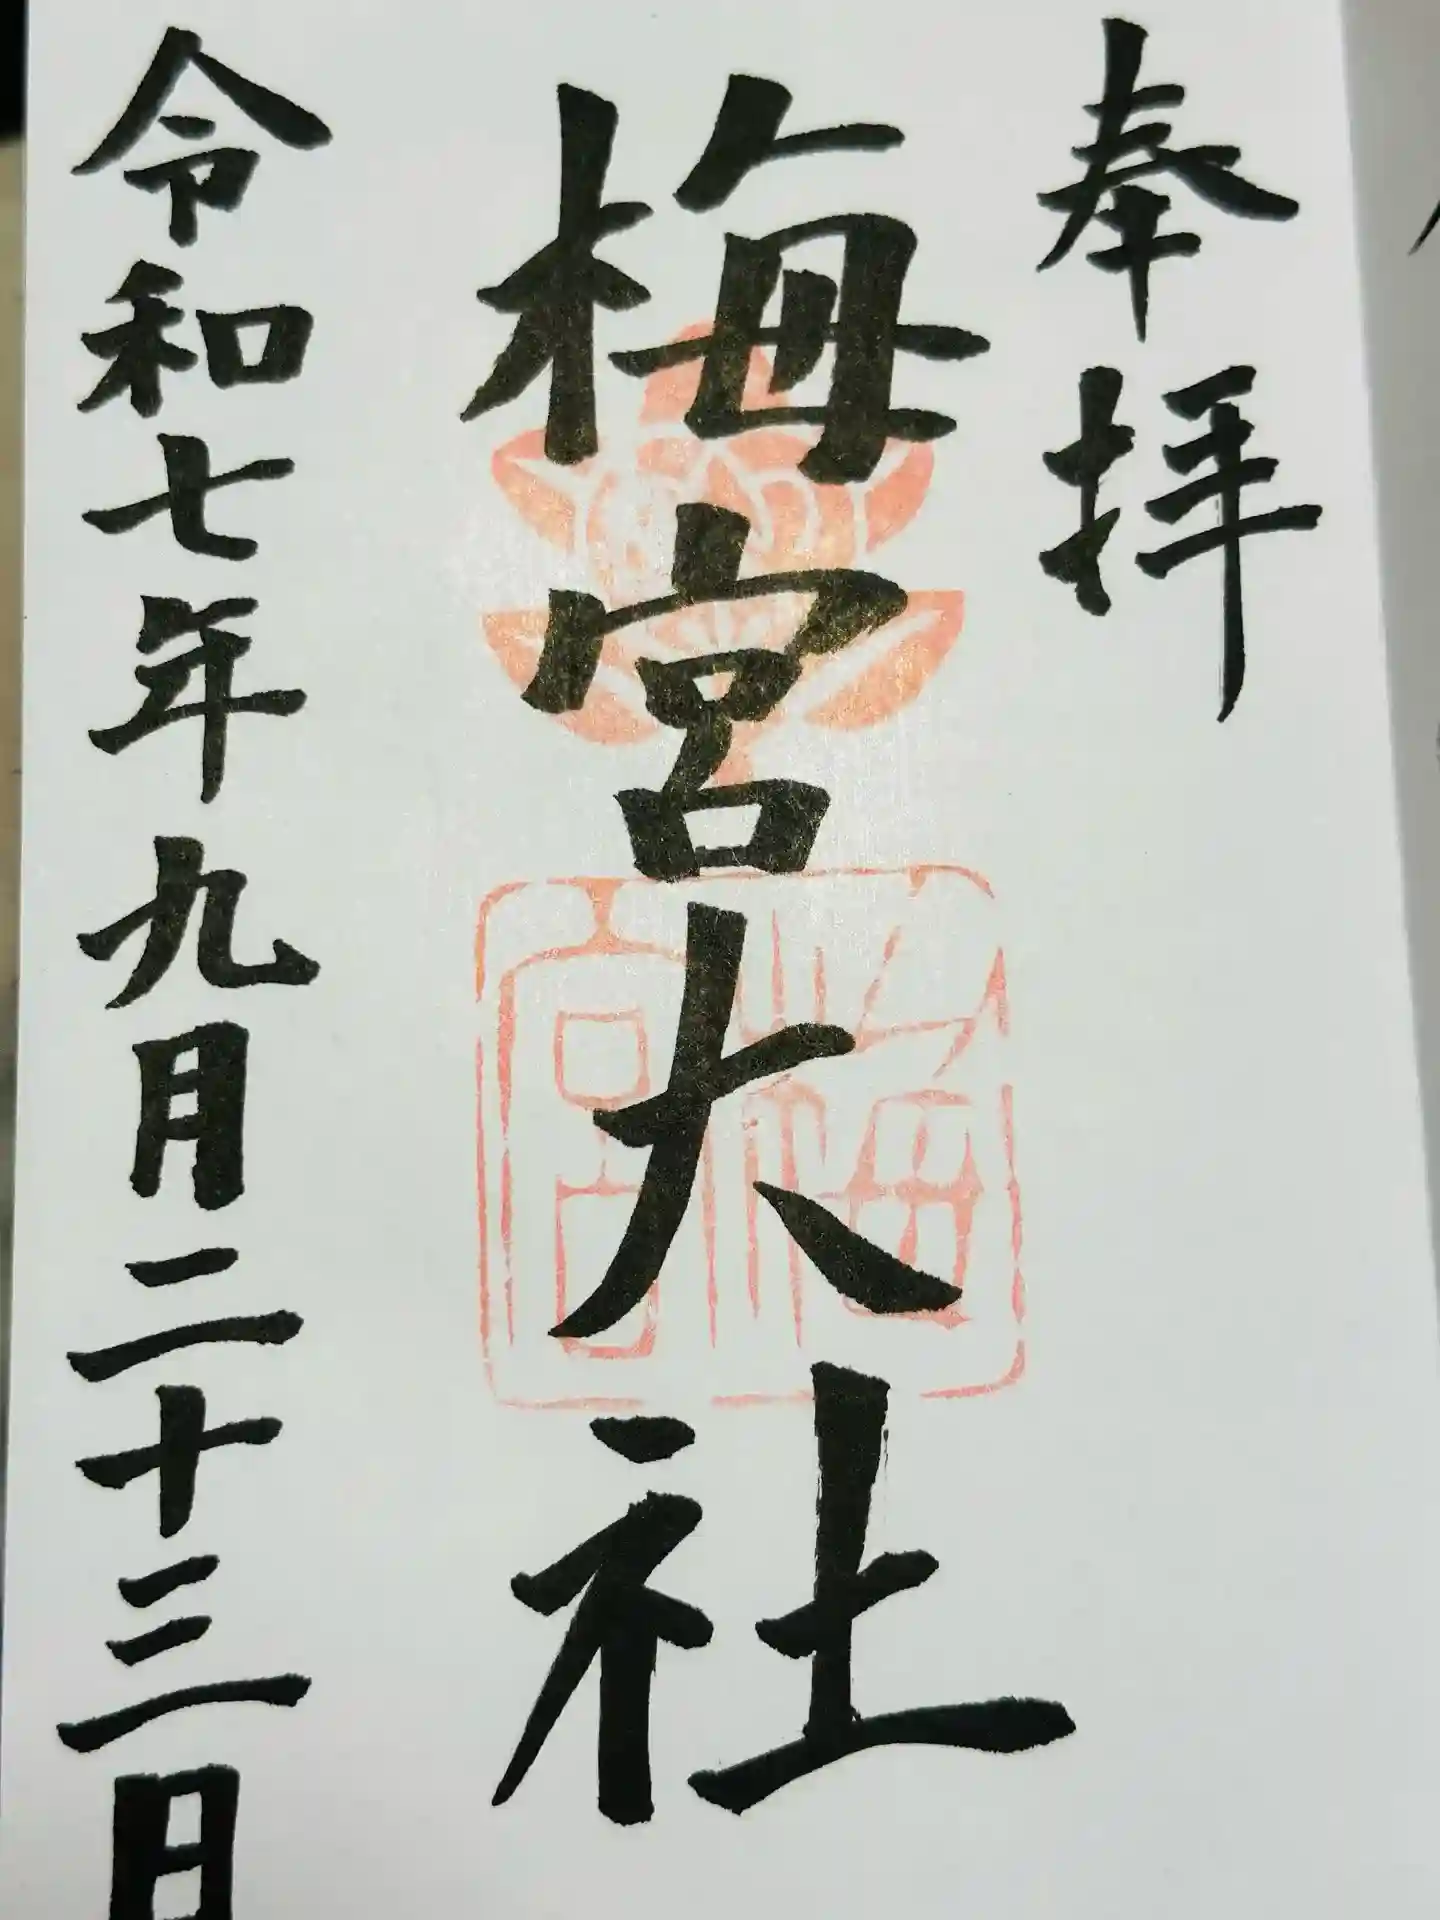 奉拝
梅宮大社
令和七年九月二十三日